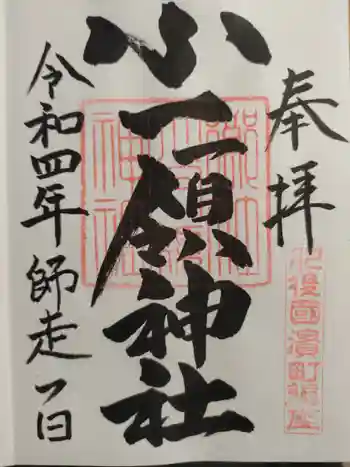 奉拝
肥後國濱町鎮座
小一領神社
令和四年師走一日